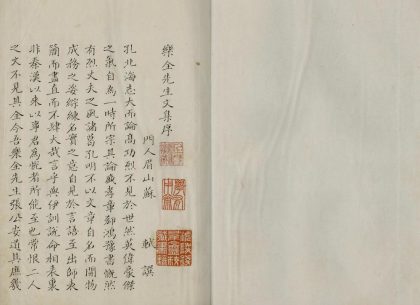 樂全先生文集序
門人眉山蘇 軾 譔
孔北海志大而論高功烈不見於世然英偉豪傑
之氣自為一時所宗其論盛孝章郗鴻豫書慨然
有烈丈夫之風諸葛孔明不以文章自名而開物
成務之姿綜練名實之意自見於言語至出師表
簡而盡直而不肆大哉言乎與伊訓說命相表裏
非秦漢以来以事君為悅者所能至也常恨二人
之文不見其全今吾樂全先生張公安道其庶幾